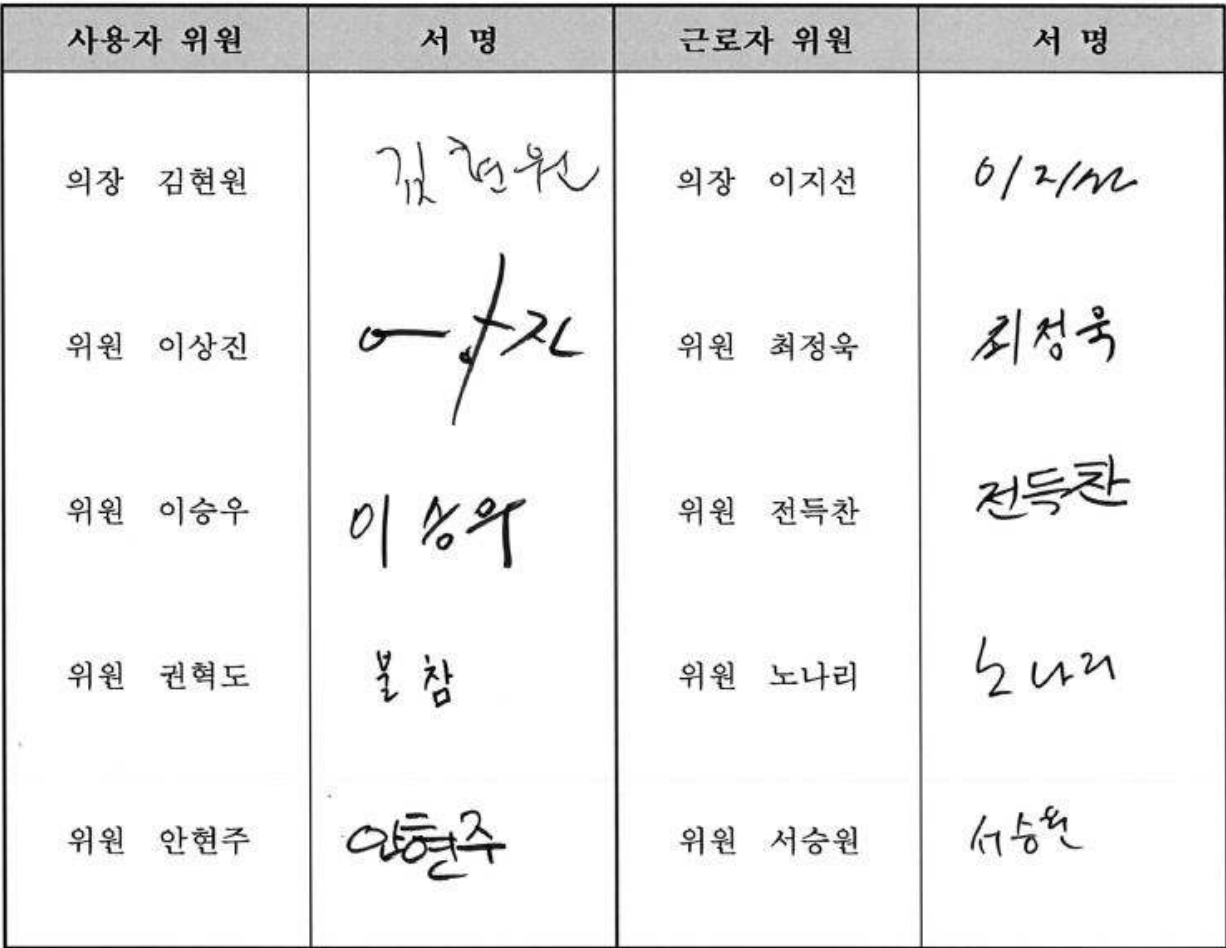 사용자 위원 서 명 근로자 위원 서 명
의장 김현원 김현원 의장 이지선 이지선
위원 이상진 위원 최정욱 최정욱
위원 이승우 이승우 위원 전득찬 전득찬
위원 권혁도 불참 위원 노나리 노나리
위원 안현주 안현주 위원 서승원 서승원